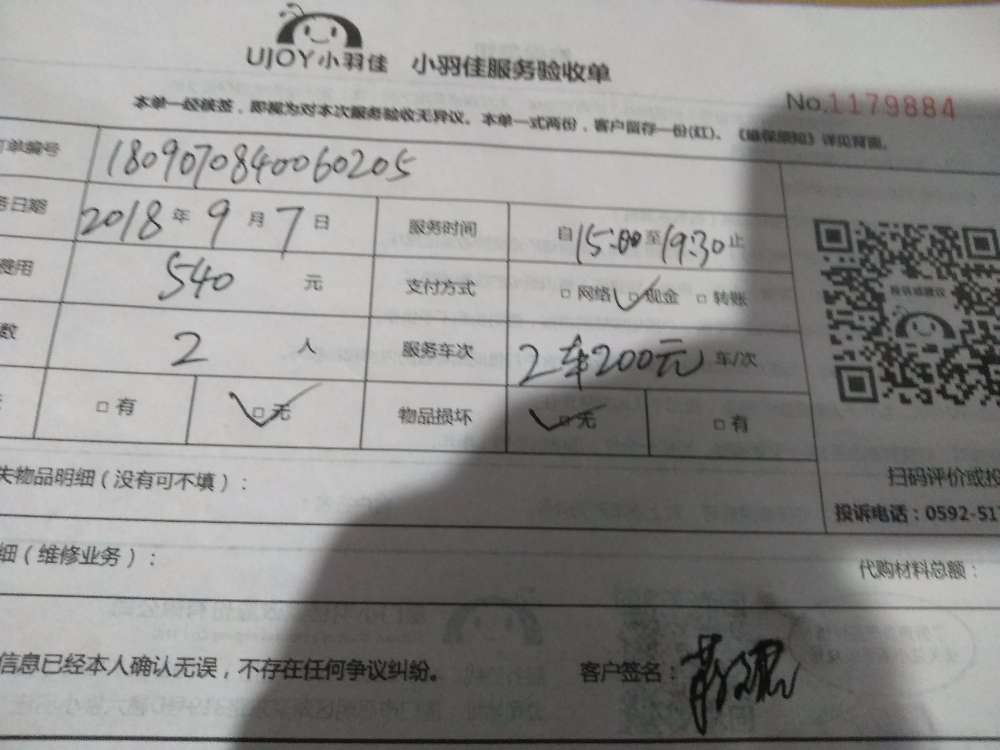 UJOY小羽佳 小羽佳服务验收单
No.1179884
本单一经核签，即视为对本次服务验收无异议。本单一式两份，客户留存一份(红)。 详见背面。
订单编号 1809070840060205
务日期 2018年9月7日 服务时间 自15:00至19:30止
费用 540 元 支付方式 □网络 □现金 □转账
数 2 人 服务车次 2车200元 车/次
□有 □无 物品损坏 □无 □有
投诉或建议
失物品明细（没有可不填）：
扫码评价或投
投诉电话：0592-517
细（维修业务）：
代购材料总额：
信息已经本人确认无误，不存在任何争议纠纷。 客户签名：